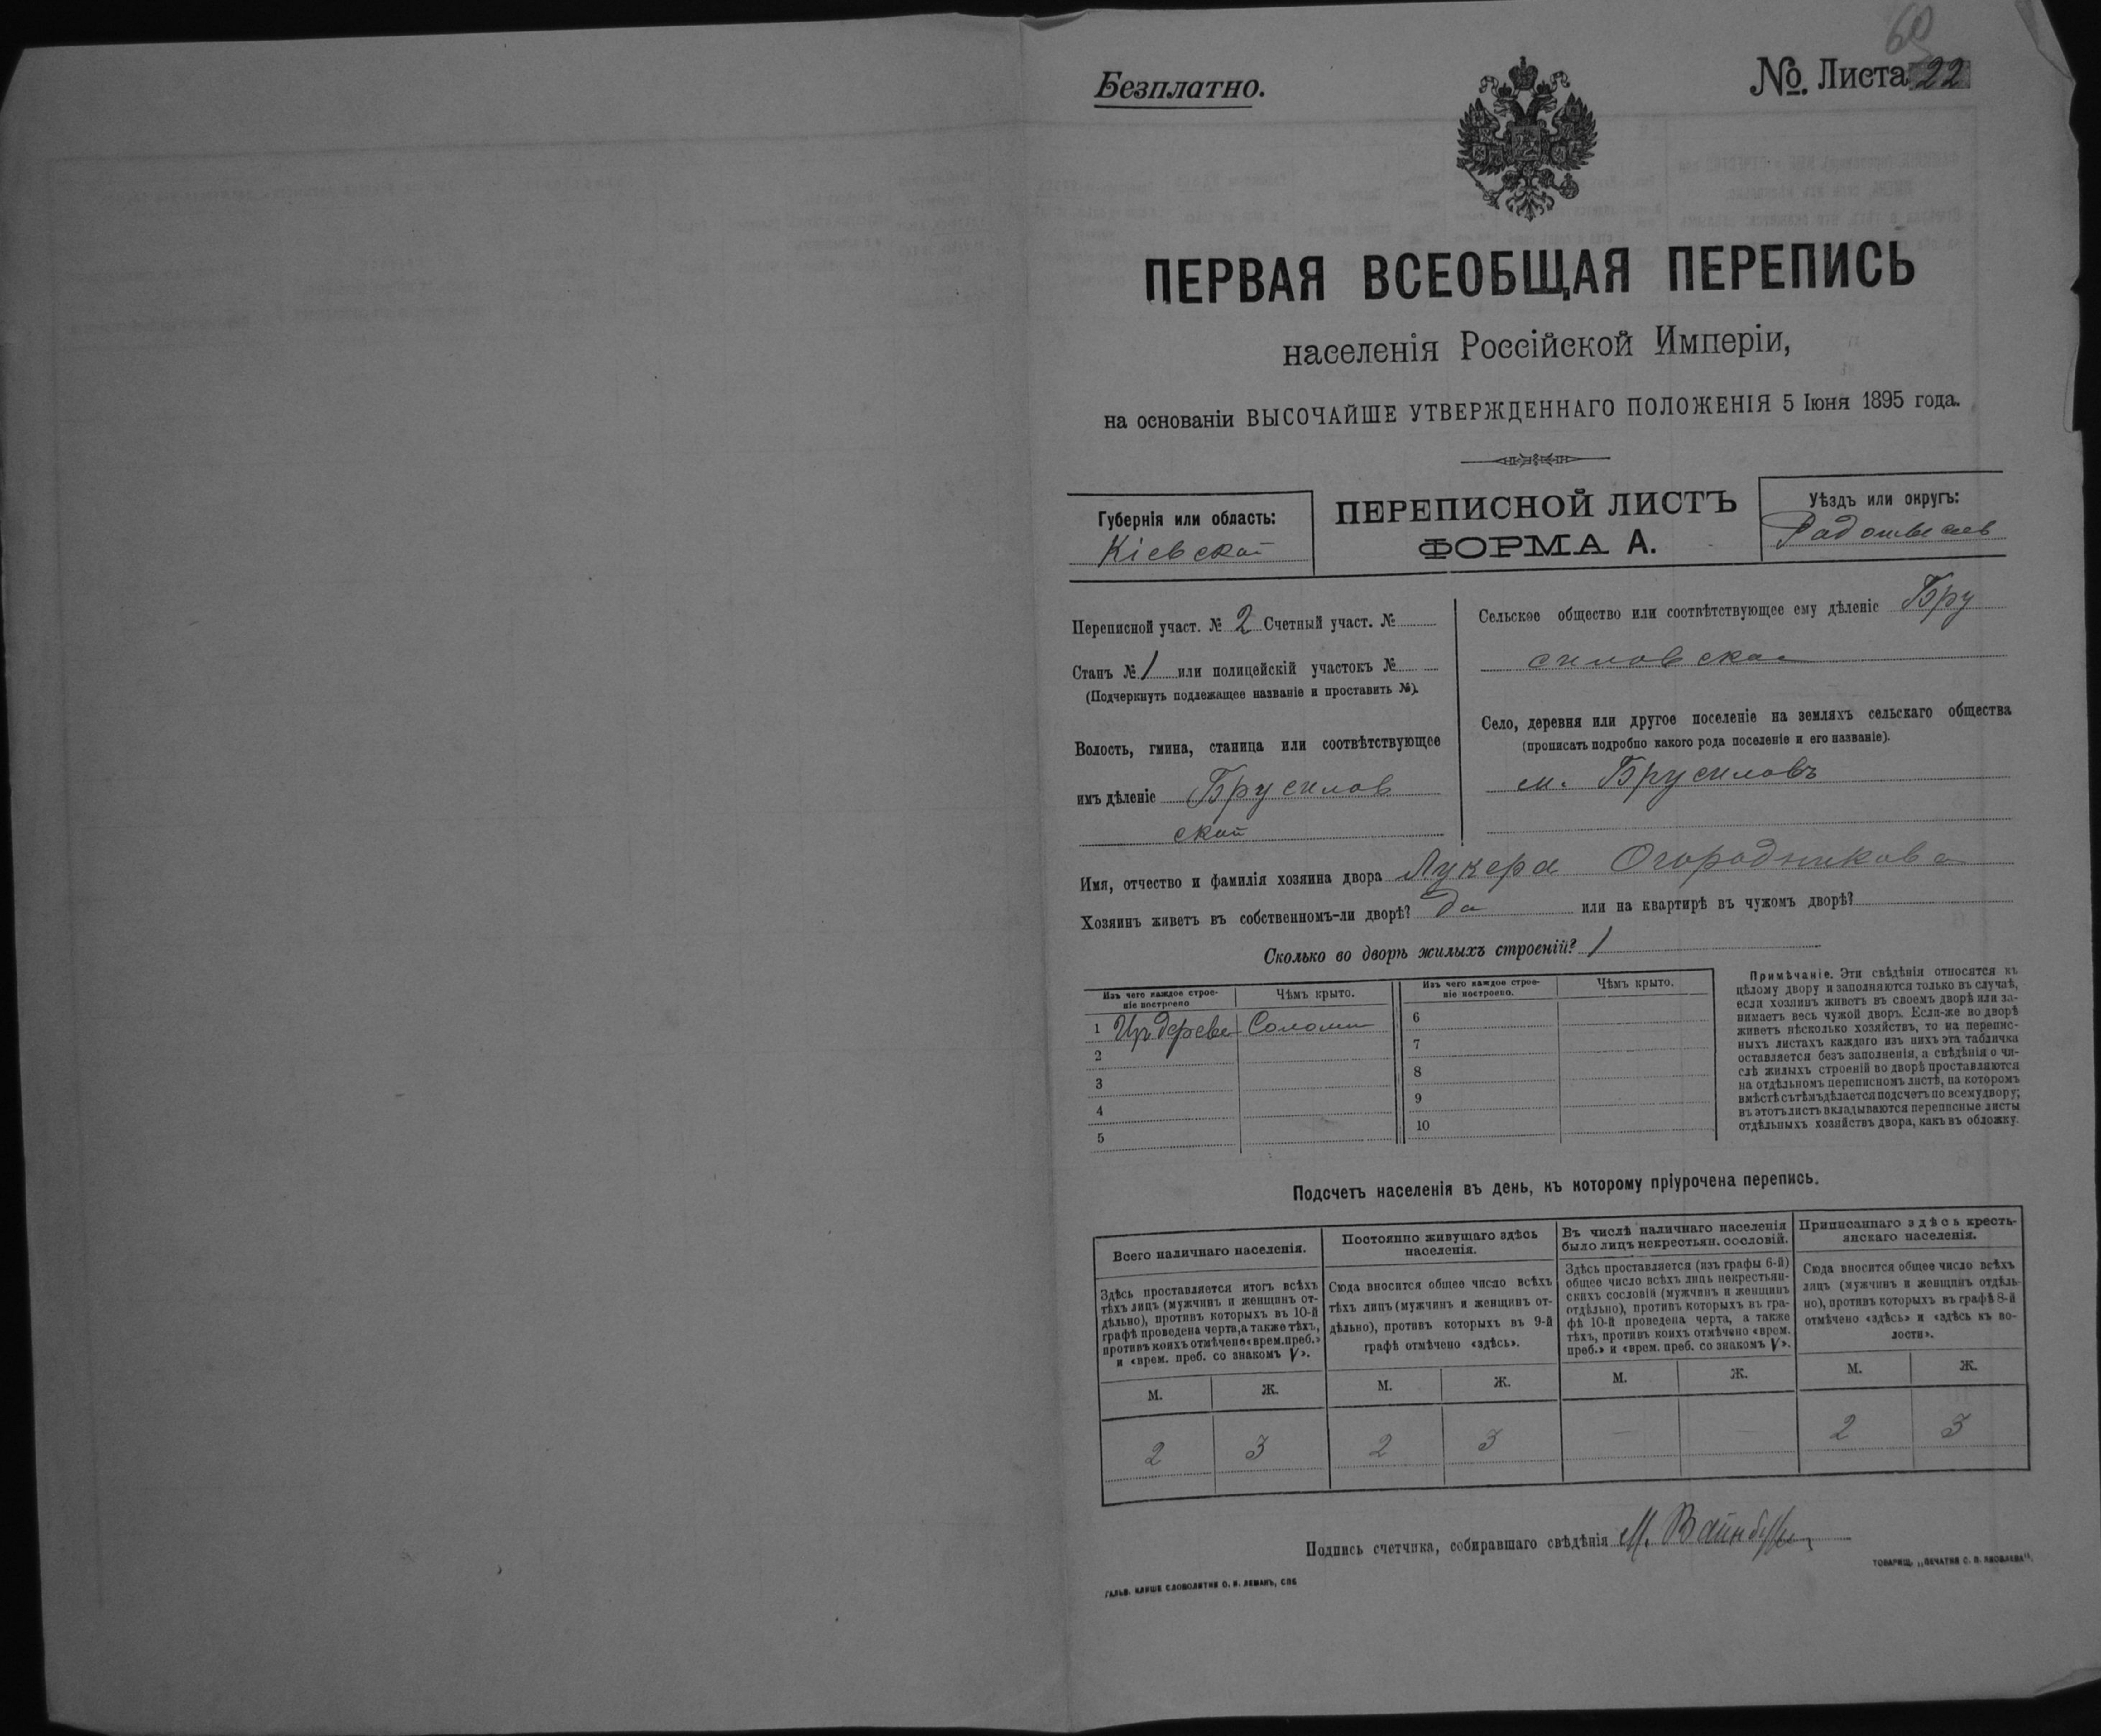 60
Безплатно.
No. Листа 22
ПЕРВАЯ ВСЕОБЩАЯ ПЕРЕПИСЬ
населенія Россійской Имперіи,
на основаніи ВЫСОЧАЙШЕ УТВЕРЖДЕННАГО ПОЛОЖЕНІЯ 5 Іюня 1895 года.
Губернія или область:
Кіевской
ПЕРЕПИСНОЙ ЛИСТЪ
ФОРМА А.
Уѣздъ или округъ:
Радомысл
Переписной участ. № 2 Счетный участ. №
Станъ № 1 или полицейскій участокъ №
(Подчеркнуть подлежащее названіе и проставить №).
Волость, гмина, станица или соотвѣтствующее
имъ дѣленіе Брусилов
ской
Сельское общество или соотвѣтствующее ему дѣленіе Бру
силовское
Село, деревня или другое поселеніе на земляхъ сельскаго общества
(прописать подробно какого рода поселеніе и его названіе).
м. Брусиловъ
Имя, отчество и фамилія хозяина двора Лукера Огородникова
Хозяинъ живетъ въ собственномъ-ли дворѣ? Да или на квартирѣ въ чужомъ дворѣ?
Сколько во дворѣ жилыхъ строеній? 1
Изъ чего каждое строе-
ніе построено
Чѣмъ крыто.
1 Изъ дерева Соломи
2
3
4
5
Изъ чего каждое строе-
ніе построено.
Чѣмъ крыто.
6
7
8
9
10
Примѣчаніе. Эти свѣдѣнія относятся къ
цѣлому двору и заполняются только въ случаѣ,
если хозяинъ живетъ въ своемъ дворѣ или за-
нимаетъ весь чужой дворъ. Если-же во дворѣ
живетъ нѣсколько хозяйствъ, то на перепис-
ныхъ листахъ каждаго изъ нихъ эта табличка
оставляется безъ заполненія, а свѣдѣнія о чи-
слѣ жилыхъ строеній во дворѣ проставляются
на отдѣльномъ переписномъ листѣ, на которомъ
вмѣстѣ съ тѣмъ дѣлается подсчетъ по всему двору;
въ этотъ листъ вкладываются переписные листы
отдѣльныхъ хозяйствъ двора, какъ въ обложку.
Подсчетъ населенія въ день, къ которому пріурочена перепись.
Всего наличнаго населенія.
Здѣсь проставляется итогъ всѣхъ
тѣхъ лицъ (мужчинъ и женщинъ от-
дѣльно), противъ которыхъ въ 10-й
графѣ проведена черта, а также тѣхъ,
противъ коихъ отмѣчено «врем. преб.»
и «врем. преб. со знакомъ V».
М. Ж.
2 3
Постоянно живущаго здѣсь
населенія.
Сюда вносится общее число всѣхъ
тѣхъ лицъ (мужчинъ и женщинъ от-
дѣльно), противъ которыхъ въ 9-й
графѣ отмѣчено «здѣсь».
М. Ж.
2 3
Въ числѣ наличнаго населенія
было лицъ некрестьян. сословій.
Здѣсь проставляется (изъ графы 6-й)
общее число всѣхъ лицъ некрестьян-
скихъ сословій (мужчинъ и женщинъ
отдѣльно), противъ которыхъ въ гра-
фѣ 10-й проведена черта, а также
тѣхъ, противъ коихъ отмѣчено «врем.
преб.» и «врем. преб. со знакомъ V».
М. Ж.
— —
Приписаннаго здѣсь кресть-
янскаго населенія.
Сюда вносится общее число всѣхъ
лицъ (мужчинъ и женщинъ отдѣль-
но), противъ которыхъ въ графѣ 8-й
отмѣчено «здѣсь» и «здѣсь къ во-
лости».
М. Ж.
2 3
Подпись счетчика, собиравшаго свѣдѣнія М.
ГАЛЬВ. КЛИШЕ СЛОВОЛИТНИ О. И. ЛЕМАНЪ, СПБ
ТОВАРИЩ. „ПЕЧАТНЯ С. П. ЯКОВЛЕВА".